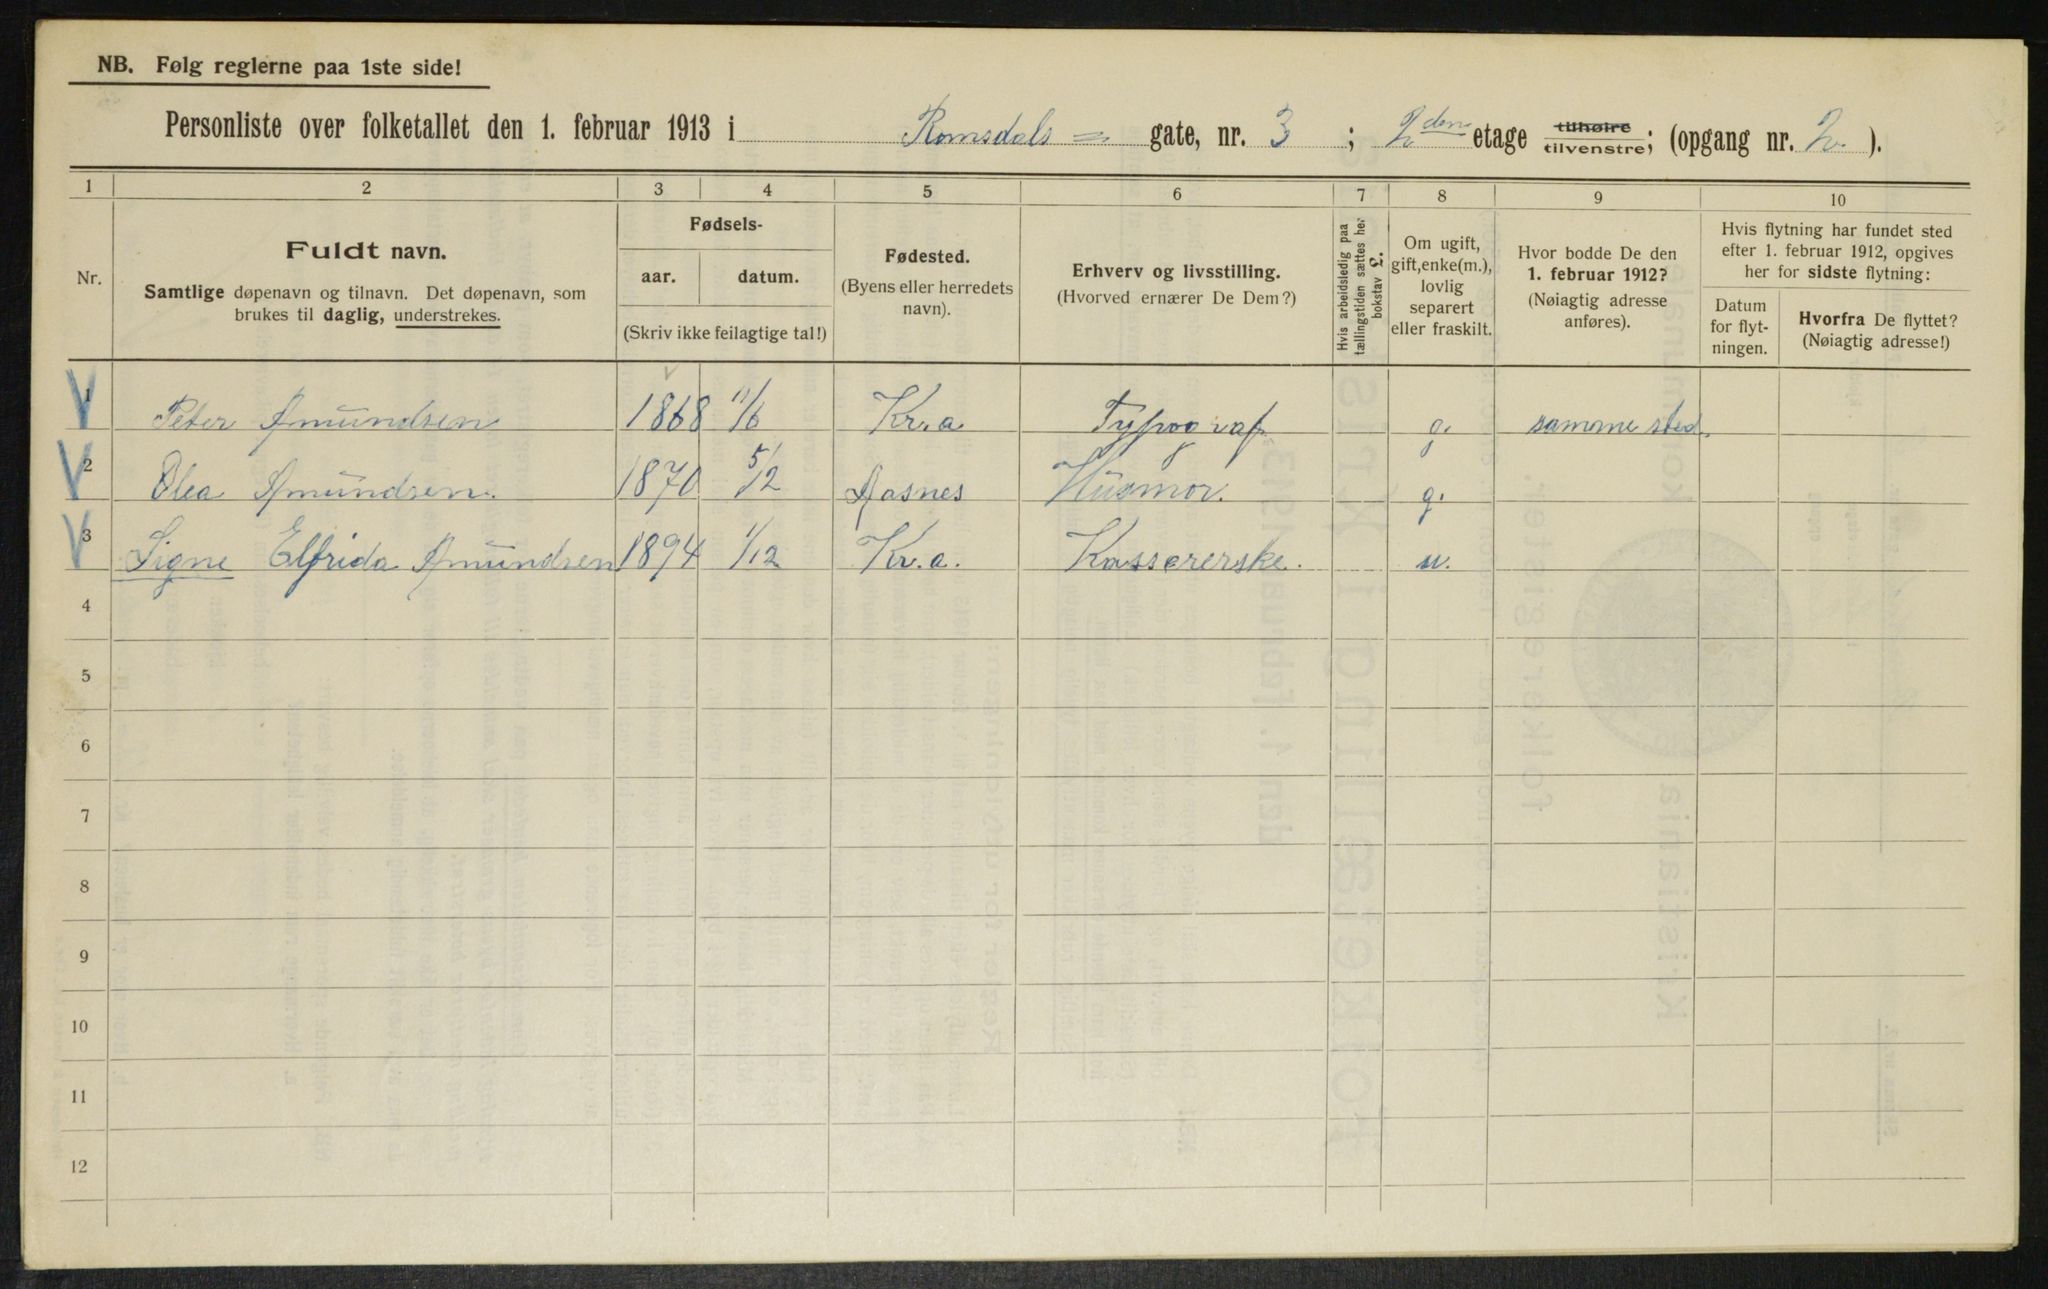 NB. Følg reglerne paa 1ste side!
Personliste over folketallet den 1. februar 1913 i Romsdals = gate, nr. 3 ; 2den etage tilhøire tilvenstre; (opgang nr. 2. ).
1 2 3 4 5 6 7 8 9 10
Nr.
Fuldt navn.
Samtlige døpenavn og tilnavn. Det døpenavn, som
brukes til daglig, understrekes.
Fødsels-
aar. datum.
(Skriv ikke feilagtige tal!)
Fødested.
(Byens eller herredets
navn).
Erhverv og livsstilling.
(Hvorved ernærer De Dem?)
Hvis arbeidsledig paa
tællingstiden sættes her
bokstav L.
Om ugift,
gift, enke(m.),
lovlig
separert
eller fraskilt.
Hvor bodde De den
1. februar 1912?
(Nøiagtig adresse
anføres).
Hvis flytning har fundet sted
efter 1. februar 1912, opgives
her for sidste flytning:
Datum
for flyt-
ningen.
Hvorfra De flyttet?
(Nøiagtig adresse!)
1 Peter Amundsen 1868 11/6 Kr.a Typograf g. samme sted.
2 Olea Amundsen. 1870 5/2 Aasnes Husmor. g.
3 Signe Elfrida Amundsen 1894 1/12 Kr.a. Kassererske. u.
4
5
6
7
8
9
10
11
12